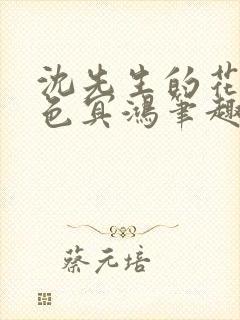 沈先生的花
色冥鸿笔趣
蔡元培